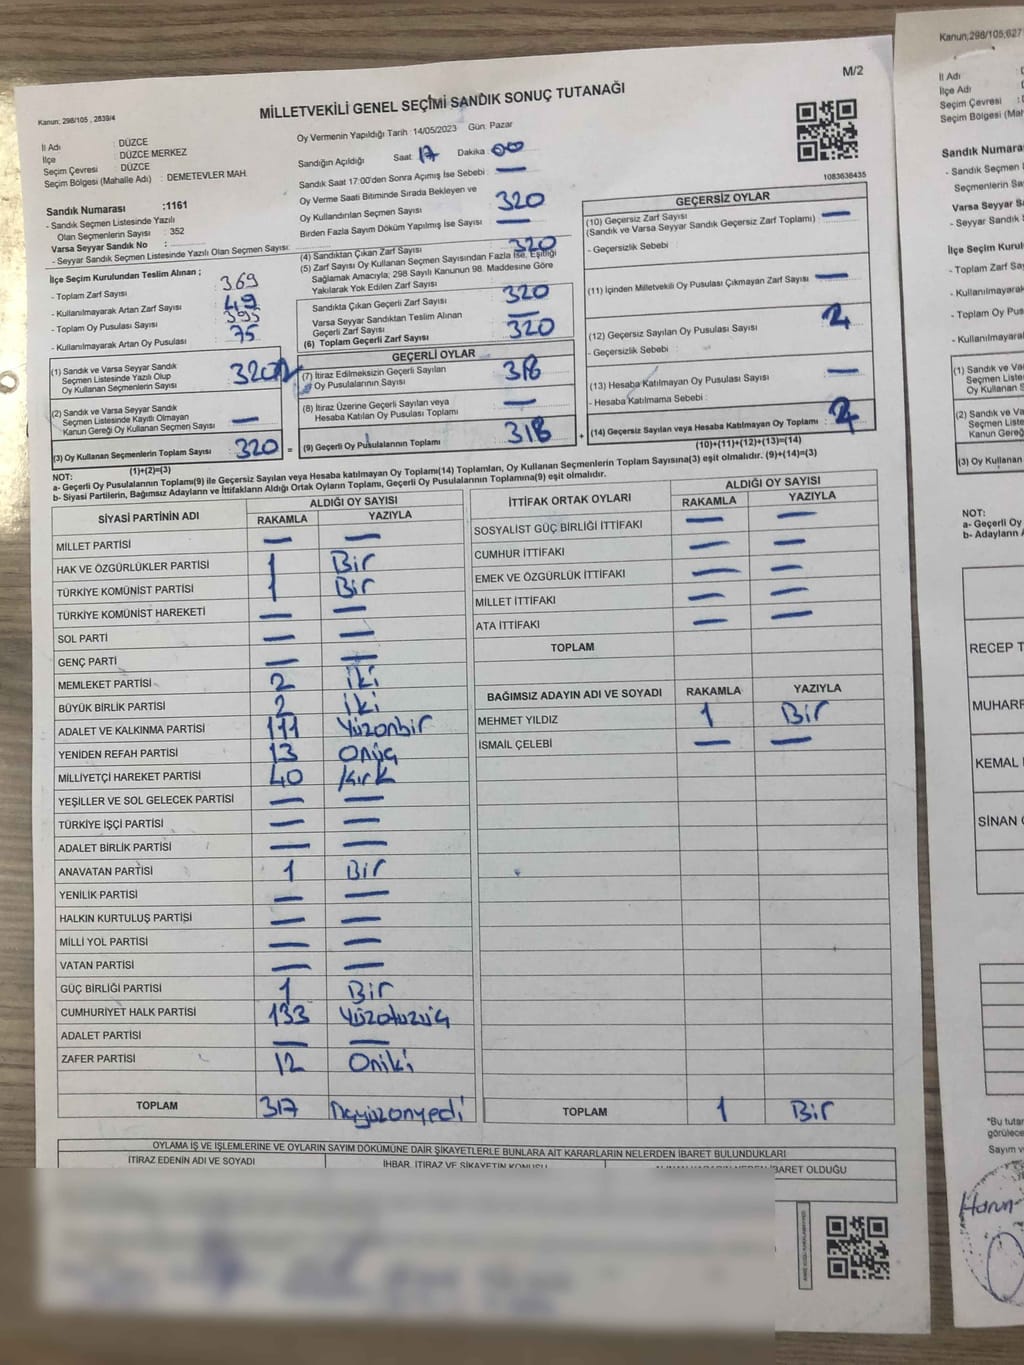 M/2
Kanun: 298/105 , 2839/4
MİLLETVEKİLİ GENEL SEÇİMİ SANDIK SONUÇ TUTANAĞI
İl Adı : DÜZCE
İlçe : DÜZCE MERKEZ
Seçim Çevresi : DÜZCE
Seçim Bölgesi (Mahalle Adı) : DEMETEVLER MAH.
Sandık Numarası :1161
- Sandık Seçmen Listesinde Yazılı
Olan Seçmenlerin Sayısı : 352
Varsa Seyyar Sandık No :
- Seyyar Sandık Seçmen Listesinde Yazılı Olan Seçmen Sayısı:
İlçe Seçim Kurulundan Teslim Alınan ;
- Toplam Zarf Sayısı : 369
- Kullanılmayarak Artan Zarf Sayısı : 49
- Toplam Oy Pusulası Sayısı : 395
- Kullanılmayarak Artan Oy Pusulası : 75
(1) Sandık ve Varsa Seyyar Sandık
Seçmen Listesinde Yazılı Olup
Oy Kullanan Seçmenlerin Sayısı : 320
(2) Sandık ve Varsa Seyyar Sandık
Seçmen Listesinde Kayıtlı Olmayan
Kanun Gereği Oy Kullanan Seçmen Sayısı : —
(3) Oy Kullanan Seçmenlerin Toplam Sayısı : 320 =
(1)+(2)=(3)
Oy Vermenin Yapıldığı Tarih : 14/05/2023 Gün: Pazar
Sandığın Açıldığı Saat : 17 Dakika : 00
Sandık Saat 17:00'den Sonra Açımış İse Sebebi : —
Oy Verme Saati Bitiminde Sırada Bekleyen ve
Oy Kullandırılan Seçmen Sayısı : 320
Birden Fazla Sayım Döküm Yapılmış İse Sayısı : —
(4) Sandıktan Çıkan Zarf Sayısı : 320
(5) Zarf Sayısı Oy Kullanan Seçmen Sayısından Fazla İse, Eşitliği
Sağlamak Amacıyla; 298 Sayılı Kanunun 98. Maddesine Göre
Yakılarak Yok Edilen Zarf Sayısı :
Sandıkta Çıkan Geçerli Zarf Sayısı : 320
Varsa Seyyar Sandıktan Teslim Alınan
Geçerli Zarf Sayısı : —
(6) Toplam Geçerli Zarf Sayısı : 320
GEÇERLİ OYLAR
(7) İtiraz Edilmeksizin Geçerli Sayılan
Oy Pusulalarının Sayısı : 318
(8) İtiraz Üzerine Geçerli Sayılan veya
Hesaba Katılan Oy Pusulası Toplamı : —
(9) Geçerli Oy Pusulalarının Toplamı : 318 +
1083636435
GEÇERSİZ OYLAR
(10) Geçersiz Zarf Sayısı : —
(Sandık ve Varsa Seyyar Sandık Geçersiz Zarf Toplamı)
- Geçersizlik Sebebi :
(11) İçinden Milletvekili Oy Pusulası Çıkmayan Zarf Sayısı : —
(12) Geçersiz Sayılan Oy Pusulası Sayısı : 2
- Geçersizlik Sebebi :
(13) Hesaba Katılmayan Oy Pusulası Sayısı : —
- Hesaba Katılmama Sebebi :
(14) Geçersiz Sayılan veya Hesaba Katılmayan Oy Toplamı : 2
(10)+(11)+(12)+(13)=(14)
NOT:
a- Geçerli Oy Pusulalarının Toplamı(9) ile Geçersiz Sayılan veya Hesaba katılmayan Oy Toplamı(14) Toplamları, Oy Kullanan Seçmenlerin Toplam Sayısına(3) eşit olmalıdır. (9)+(14)=(3)
b- Siyasi Partilerin, Bağımsız Adayların ve İttifakların Aldığı Ortak Oyların Toplamı, Geçerli Oy Pusulalarının Toplamına(9) eşit olmalıdır.
SİYASİ PARTİNİN ADI ALDIĞI OY SAYISI
RAKAMLA YAZIYLA
MİLLET PARTİSİ — —
HAK VE ÖZGÜRLÜKLER PARTİSİ 1 Bir
TÜRKİYE KOMÜNİST PARTİSİ 1 Bir
TÜRKİYE KOMÜNİST HAREKETİ — —
SOL PARTİ — —
GENÇ PARTİ — —
MEMLEKET PARTİSİ 2 İki
BÜYÜK BİRLİK PARTİSİ 2 İki
ADALET VE KALKINMA PARTİSİ 111 Yüzonbir
YENİDEN REFAH PARTİSİ 13 Onüç
MİLLİYETÇİ HAREKET PARTİSİ 40 Kırk
YEŞİLLER VE SOL GELECEK PARTİSİ — —
TÜRKİYE İŞÇİ PARTİSİ — —
ADALET BİRLİK PARTİSİ — —
ANAVATAN PARTİSİ 1 Bir
YENİLİK PARTİSİ — —
HALKIN KURTULUŞ PARTİSİ — —
MİLLİ YOL PARTİSİ — —
VATAN PARTİSİ — —
GÜÇ BİRLİĞİ PARTİSİ 1 Bir
CUMHURİYET HALK PARTİSİ 133 Yüzotuzüç
ADALET PARTİSİ — —
ZAFER PARTİSİ 12 Oniki
TOPLAM 317
İTTİFAK ORTAK OYLARI ALDIĞI OY SAYISI
RAKAMLA YAZIYLA
SOSYALİST GÜÇ BİRLİĞİ İTTİFAKI — —
CUMHUR İTTİFAKI — —
EMEK VE ÖZGÜRLÜK İTTİFAKI — —
MİLLET İTTİFAKI — —
ATA İTTİFAKI — —
TOPLAM
BAĞIMSIZ ADAYIN ADI VE SOYADI RAKAMLA YAZIYLA
MEHMET YILDIZ 1 Bir
İSMAİL ÇELEBİ — —
TOPLAM 1 Bir
OYLAMA İŞ VE İŞLEMLERİNE VE OYLARIN SAYIM DÖKÜMÜNE DAİR ŞİKAYETLERLE BUNLARA AİT KARARLARIN NELERDEN İBARET BULUNDUKLARI
İTİRAZ EDENİN ADI VE SOYADI
İHBAR, İTİRAZ VE ŞİKAYETİN KONUSU
İBARET OLDUĞU
Kanun:298/105;627
İl Adı
İlçe Adı
Seçim Çevresi
Seçim Bölgesi (Mah
Sandık Numarası
- Sandık Seçmen
Seçmenlerin Sayısı
Varsa Seyyar
- Seyyar Sandık
İlçe Seçim Kurulu
- Toplam Zarf
- Kullanılmayarak
- Toplam Oy Pus
- Kullanılmaya
(1) Sandık ve Va
Seçmen Listes
Oy Kullanan
(2) Sandık ve Vars
Seçmen Listes
Kanun Gereği
(3) Oy Kullanan
NOT:
a- Geçerli Oy
b- Adayların
RECEP T
MUHARR
KEMAL
SİNAN
*Bu tutar
görülece
Sayım v
Harun